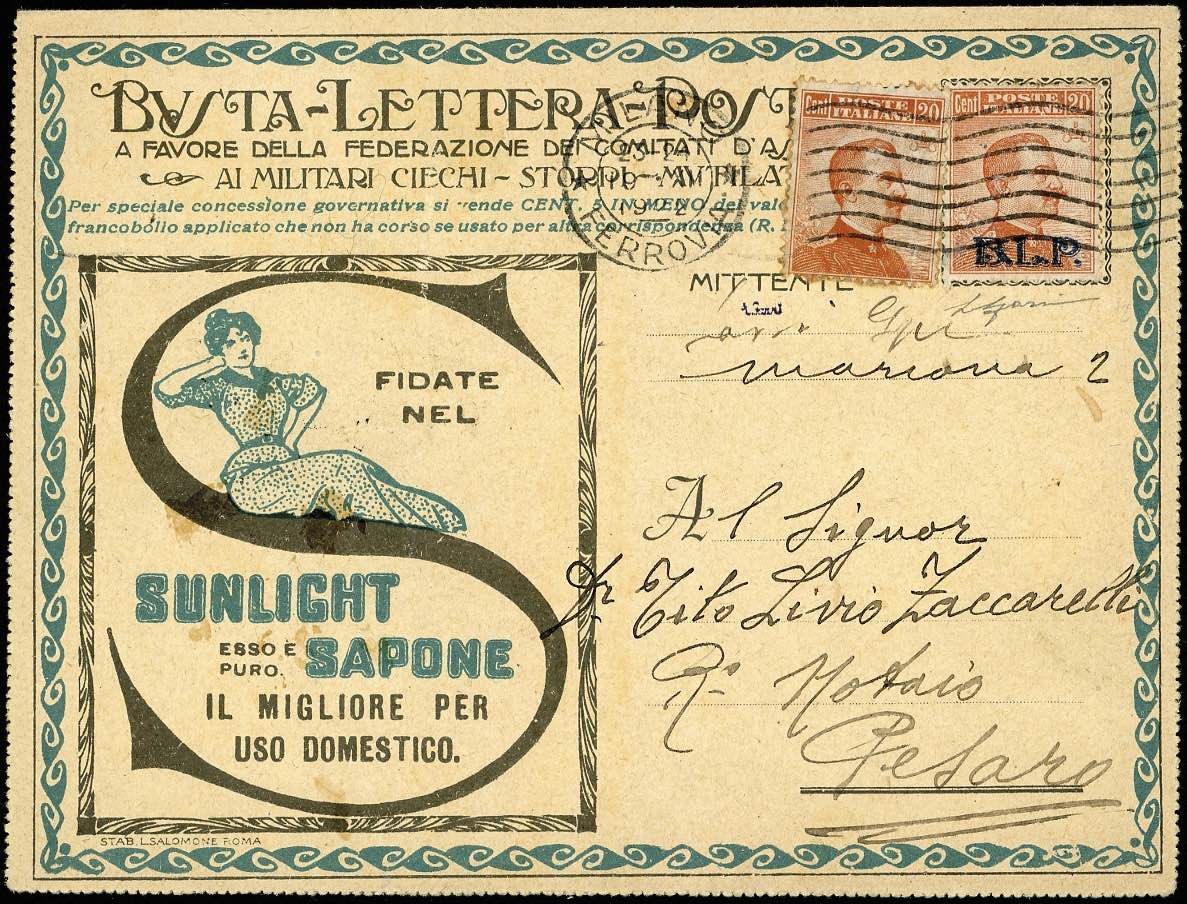 BVSTA-LETTERA POST
A FAVORE DELLA FEDERAZIONE DEI COMITATI D'AS
AI MILITARI CIECHI - STORPI - MVTILA
Per speciale concessione governativa si vende CENT. 5 IN MENO del valo
francobollo applicato che non ha corso se usato per altra corrispondenza (R.
FERROVIA
23-24
19
Cent POSTE 20
ITALIANE
Cent POSTE 20
ITALIANE
B.L.P.
MITTENTE
2
FIDATE
NEL
SUNLIGHT
ESSO È
PURO.
SAPONE
IL MIGLIORE PER
USO DOMESTICO.
STAB. L. SALOMONE ROMA
Al Signor
Dr Tito Livio Zaccarelli
R. Notaio
Pesaro